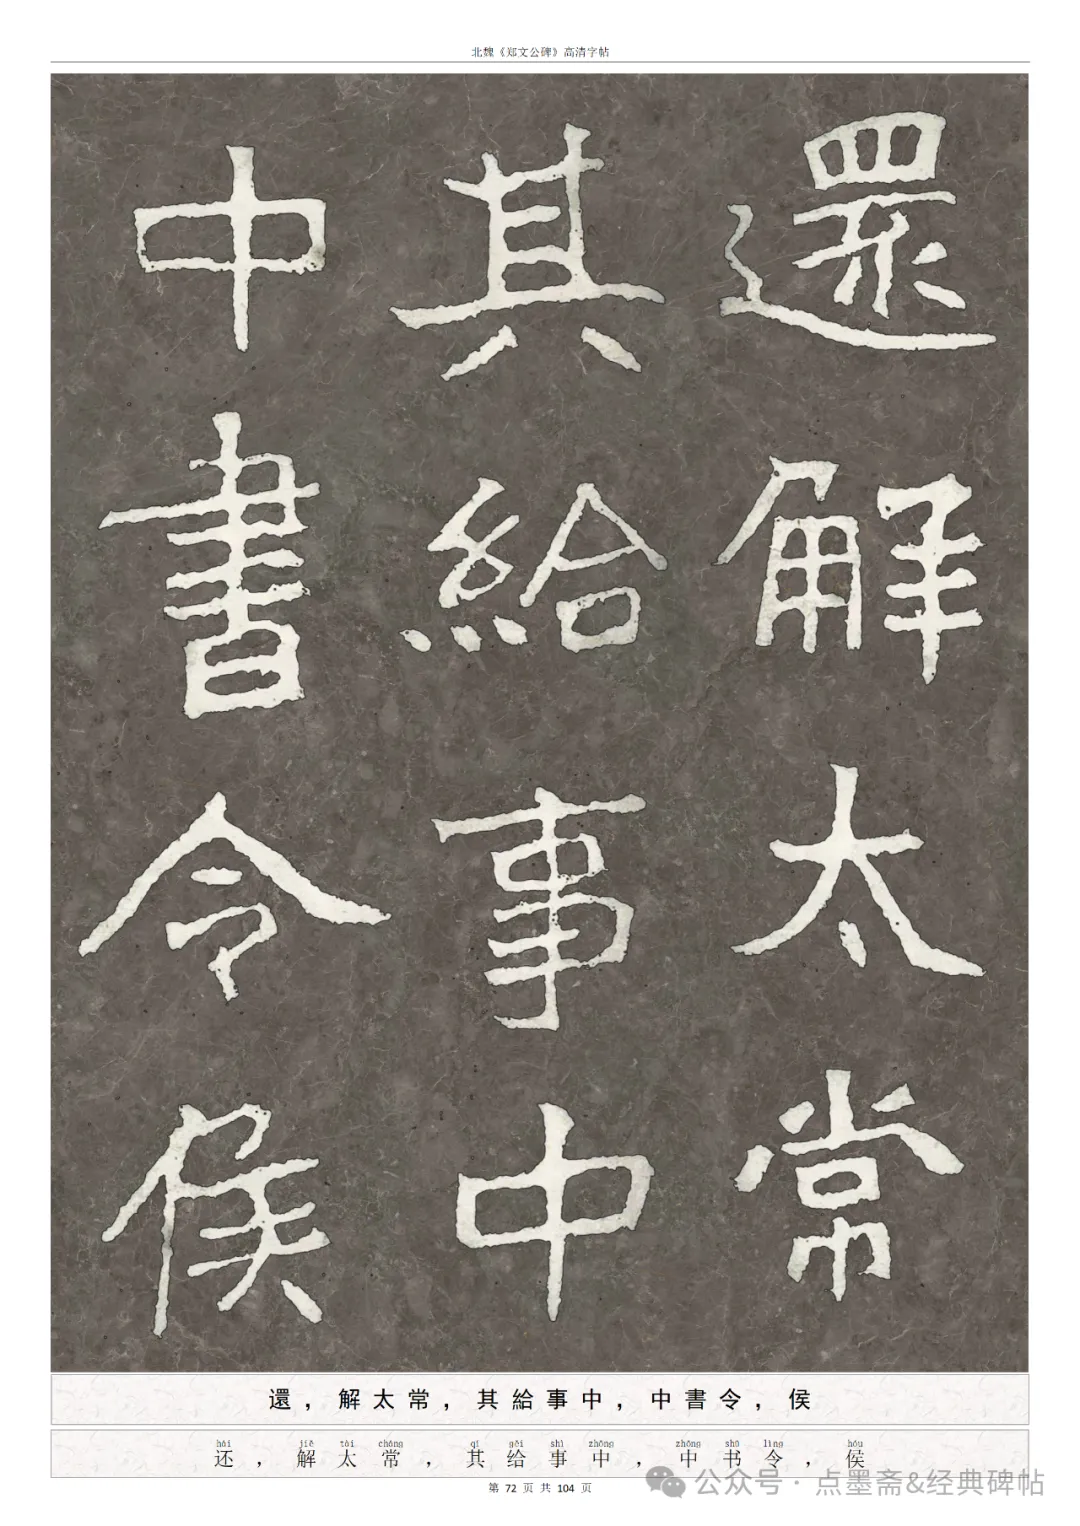 北魏《郑文公碑》高清字帖
還解太常
其給事中
中書令侯
還，解太常，其給事中，中書令，侯
hái jiě tài cháng qí gěi shì zhōng zhōng shū lìng hóu
还，解太常，其给事中，中书令，侯
第 72 页 共 104 页
公众号·点墨斋&经典碑帖